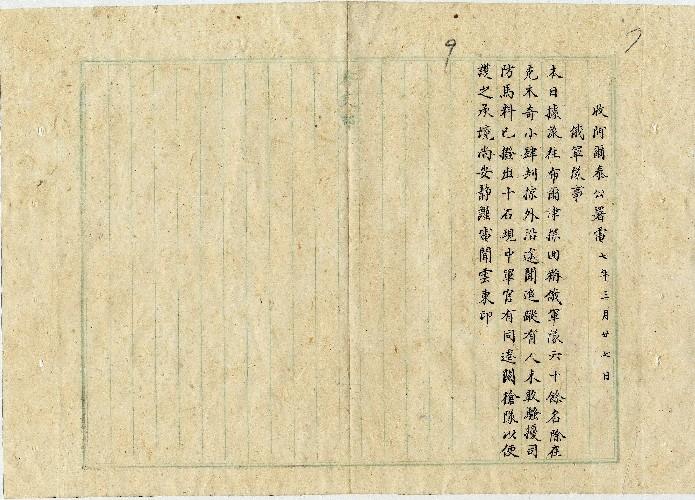 收阿爾泰公署電 七年三月廿七日
俄軍隊事
本日據派往布爾津探回稱俄軍隊六十餘名除在
克木奇小肆刦掠外沿途聞追蹤有人未敢騷擾司
防馬料已撥出十石現中軍官有同逵閱槍隊以便
護之承境尚安靜謹電聞雲東印
9
7